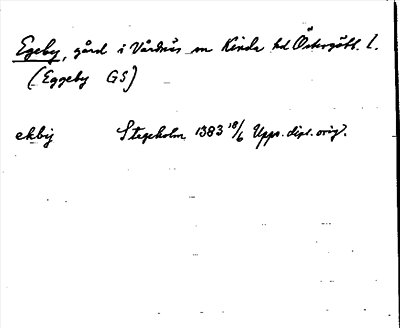 Egeby, gård i Vårdnäs sn Kinda hd Östergötl. l.
(Eggeby GS)
ekby Stegeholm 1383 18/6 Upps. dipl. orig.